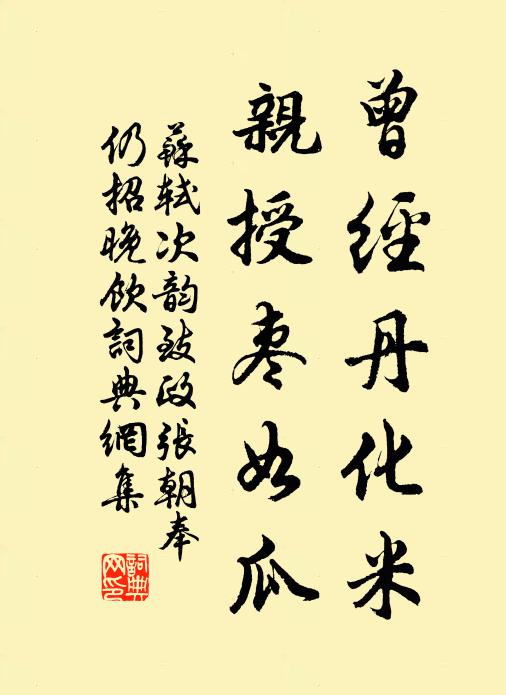 曾經丹化米
親授枣如瓜
蘇軾次韵致政張朝奉
仍招晚飲詞典網集
詞典
网印